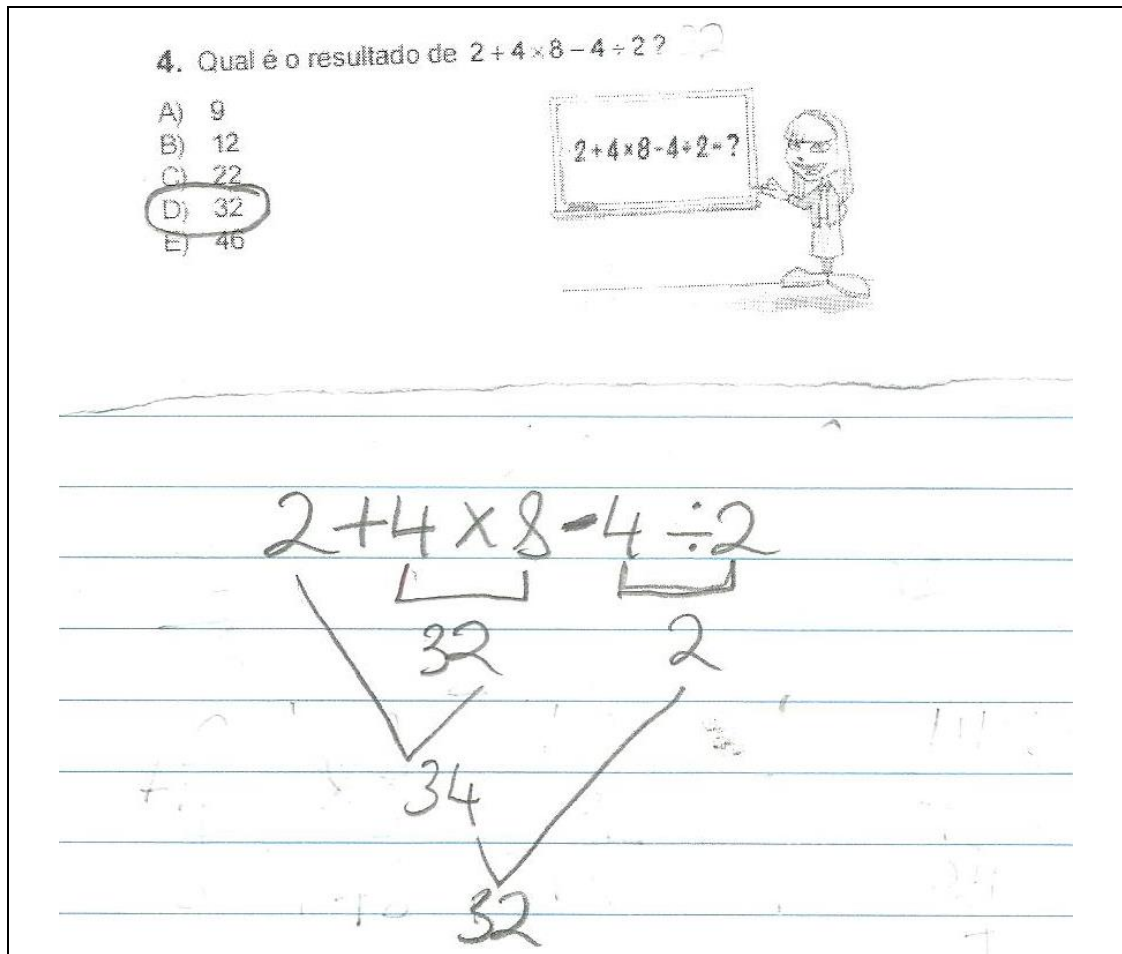 4. Qual é o resultado de 2 + 4 × 8 − 4 ÷ 2 ?
A) 9
B) 12
C) 22
D) 32
E) 46
2+4×8-4÷2=?
2+4×8-4÷2
32 2
34
32